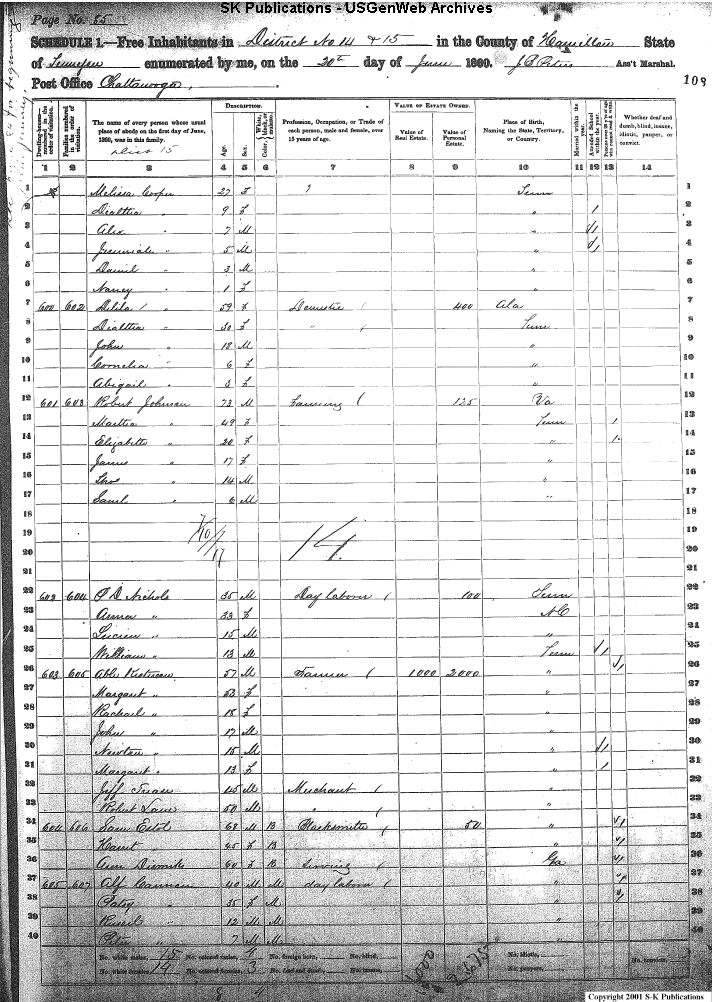 SK Publications - USGenWeb Archives
Page No. 85
SCHEDULE 1.—Free Inhabitants in District No 14 & 15 in the County of Hamilton State
of Tennessee enumerated by me, on the 20th day of June 1860. Ass't Marshal.
Post Office Chattanooga
Dwelling-houses—numbered in the order of visitation.
Families numbered in the order of visitation.
The name of every person whose usual place of abode on the first day of June, 1860, was in this family.
Dist 15
DESCRIPTION.
Age.
Sex.
Color,
Profession, Occupation, or Trade of each person, male and female, over 15 years of age.
VALUE OF ESTATE OWNED.
Value of Real Estate.
Value of Personal Estate.
Place of Birth, Naming the State, Territory, or Country.
Married within the year.
Attended School within the year.
Whether deaf and dumb, blind, insane, idiotic, pauper, or convict.
1 2 3 4 5 6 7 8 9 10 11 12 13 14
1 Melissa Cooper 27 F Tenn 1
2 " 9 F " 1 2
3 Alex " 7 M " 1 3
4 Jeremiah " 5 M " 1 4
5 Daniel " 3 M " 5
6 Nancy " 1 F " 6
7 600 602 Delila " 59 F Domestic 400 Ala 7
8 " 30 F " Tenn 8
9 John " 18 M " 9
10 Cornelia " 6 F " 10
11 Abigail " 3 F " 11
12 601 603 Robert Johnson 73 M Farming 125 Va 12
13 Martha " 49 F Tenn 1 13
14 Elizabeth " 20 F " 1 14
15 James " 17 F " 15
16 Thos " 14 M " 16
17 Saml " 6 M " 17
18 18
19 14 19
20 20
21 21
22 602 604 P D Nichols 35 M Day laborer 100 Tenn 22
23 Anna " 33 F NC 23
24 Lucien " 15 M " 24
25 William " 13 M Tenn 1 25
26 603 605 Able 57 M Farmer 1000 2000 " 1 26
27 Margaret " 53 F " 27
28 Rachael " 18 F " 28
29 John " 17 M " 29
30 Newton " 15 M " 1 30
31 Margaret " 13 F " 1 31
32 Jeff 45 M Merchant " 32
33 Robert Lane 50 M " " 33
34 604 606 Sam 68 M B Blacksmith 50 " 1 34
35 " 45 F B " 1 35
36 Ann 60 F B Serving Ga 1 36
37 605 607 Alf 40 M M day labor " 37
38 Patsy " 35 F M " 38
39 Russell " 12 M M " 39
40 Peter " 7 M M 40
No. white males, 15 No. colored males, No. foreign born, No. blind, No. idiotic, No. convicts,
No. white females, 14 No. colored females, 3 No. deaf and dumb, No. insane, No. paupers,
Copyright 2001 S-K Publications